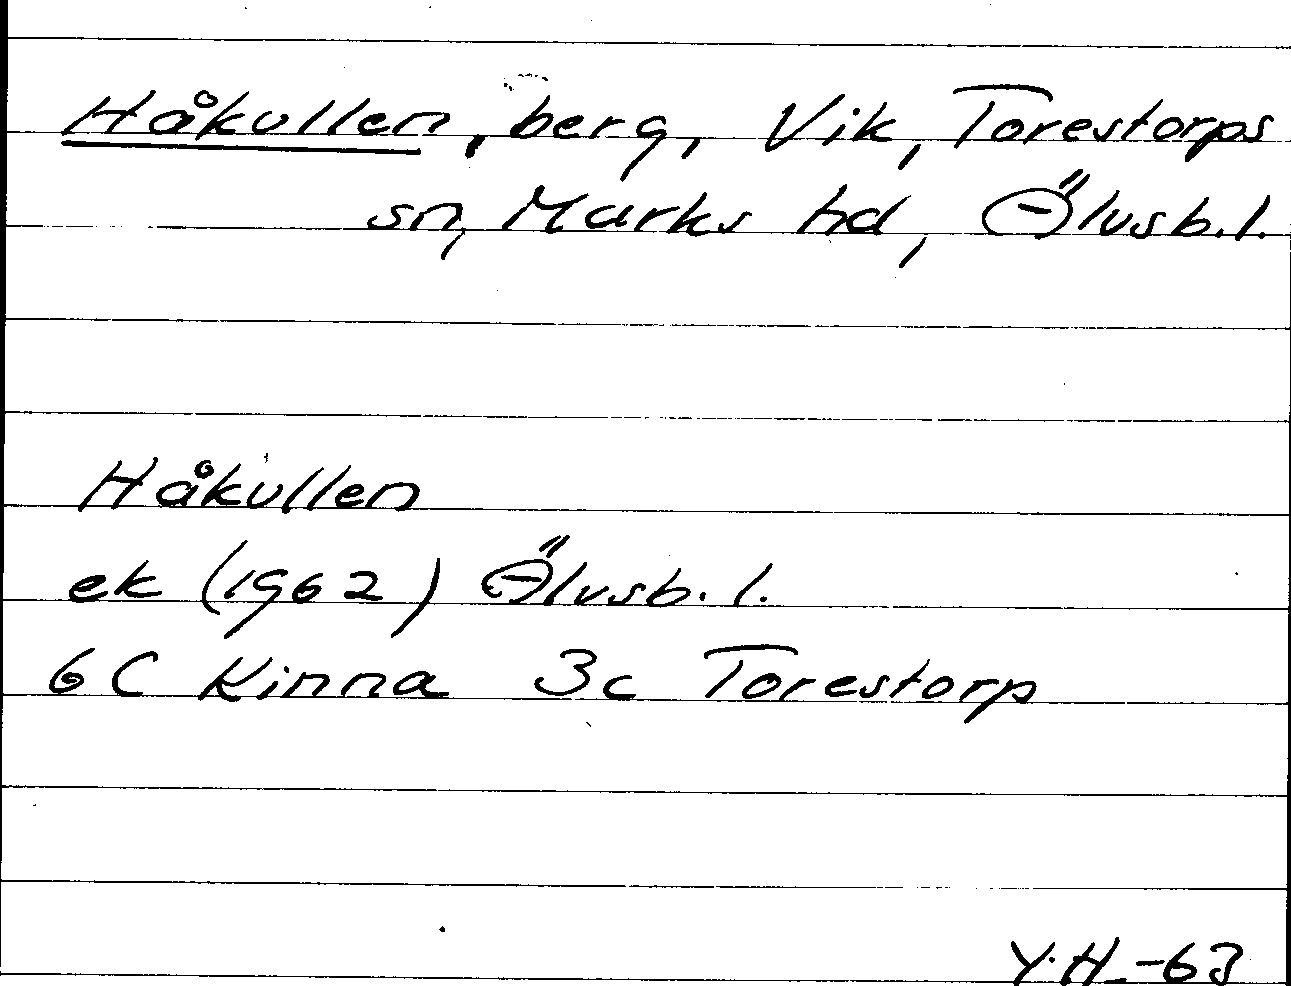 Håkullen, berg, Vik, Torestorps
sn, Marks hd, Älvsb. l.
Håkullen
ek (1962) Älvsb. l.
6C Kinna 3c Torestorp
Y.H. -63